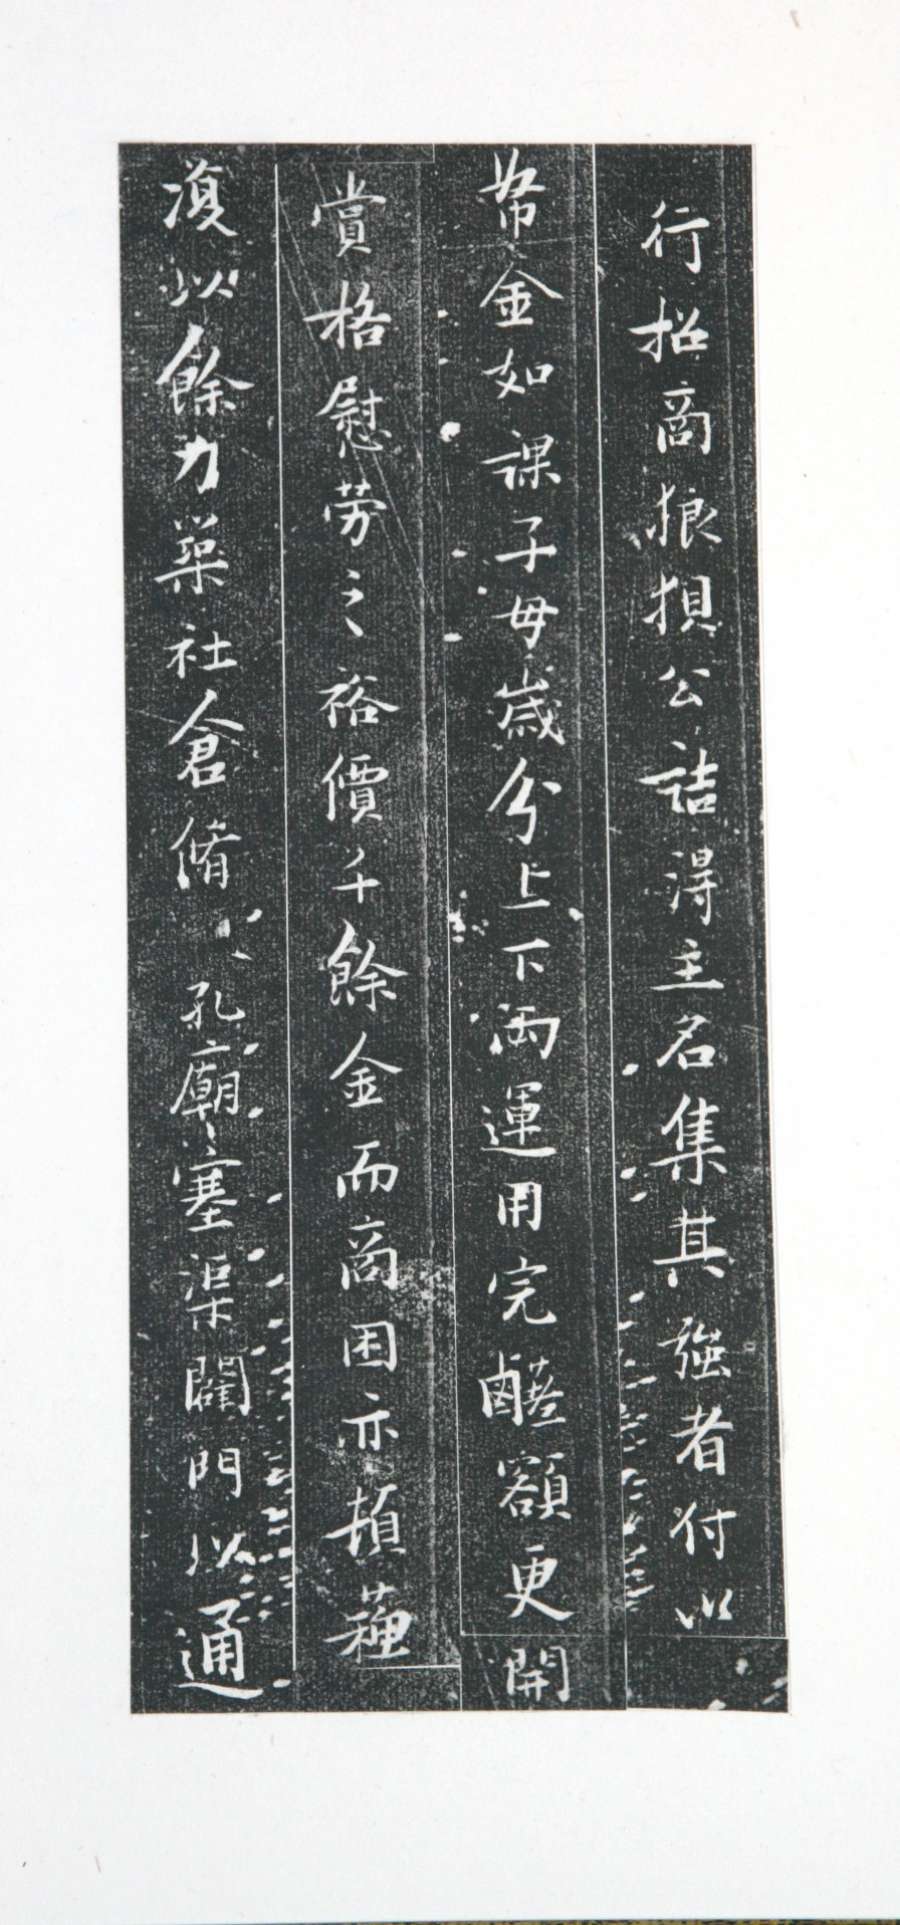 行招商狼狽公詰得主名集其強者付以
帑金如課子母歲分上下兩運用完醝額更開
賞格慰勞之裕價千餘金而商困亦頓蘇
復以餘力築社倉脩孔廟塞渠闢門以通